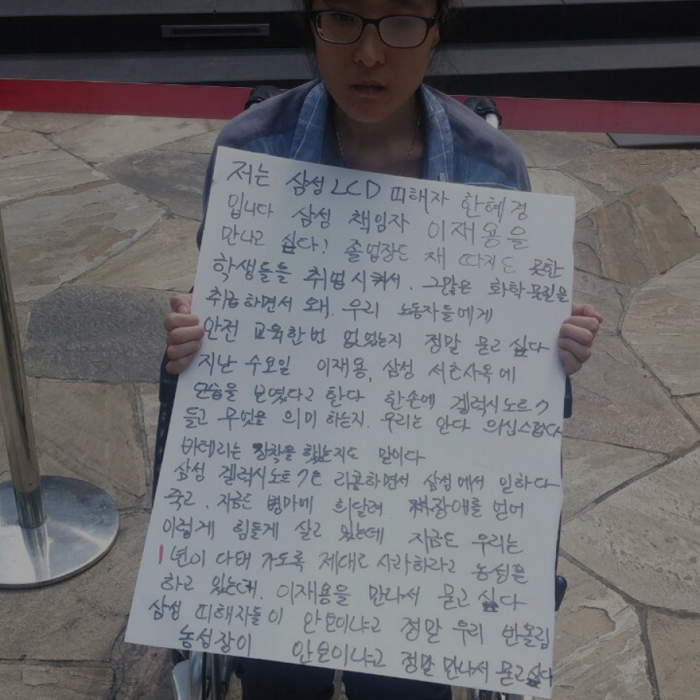 저는 삼성 LCD 피해자 한혜경
입니다 삼성 책임자 이재용을
만나고 싶다! 졸업장도 채 따지도 못한
학생들을 취업시켜서. 그많은 화학물질을
취급하면서 왜. 우리 노동자들에게
안전 교육한번 없었는지 정말 묻고 싶다
지난 수요일 이재용, 삼성 서초사옥에
모습을 보였다고 한다 한손에 겔럭시노트7
들고 무엇을 의미 하는지. 우리는 안다 의심스럽다
바테리는 장착을 했는지도 말이다
삼성 겔럭시노트7은 리콜하면서 삼성에서 일하다
죽고. 지금도 병마에 희달려 장애를 얻어
이렇게 힘들게 살고 있는데 지금도 우리는
1년이 다돼 가도록 제대로 사과하라고 농성을
하고 있는데. 이재용을 만나서 묻고 싶다
삼성 피해자들이 안보이냐고 정말 우리 반올림
농성장이 안보이냐고 정말 만나서 묻고싶다